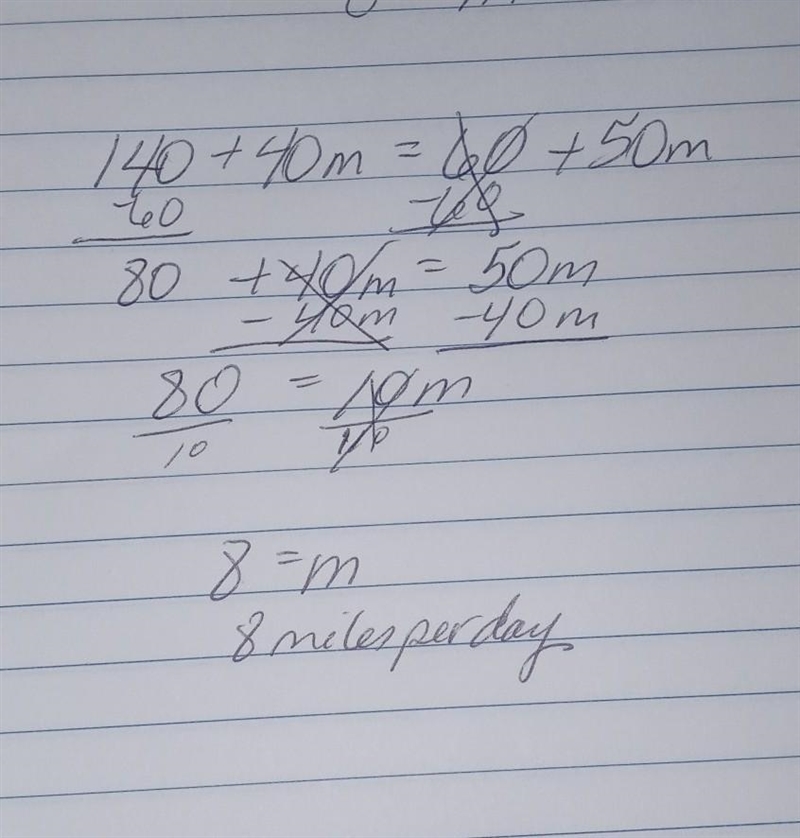 140 + 40m = 60 + 50m
-60 -60
80 + 40m = 50m
- 40m -40m
80 = 10m
10 10
8 = m
8 miles per day